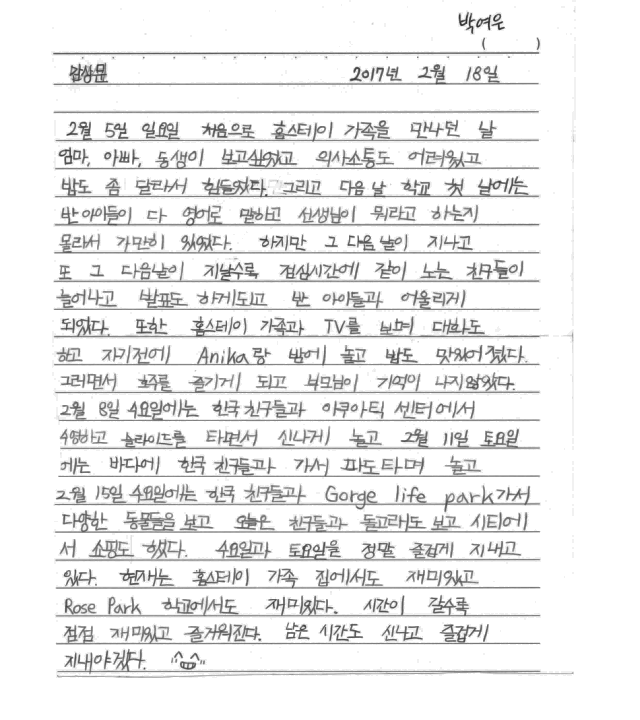 박여은
(        )
감상문 2017년 2월 18일
2월 5일 일요일 처음으로 홈스테이 가족을 만나던 날
엄마, 아빠, 동생이 보고싶었고 의사소통도 어려웠고
밥도 좀 달라서 힘들었다. 그리고 다음 날 학교 첫 날에는
반 아이들이 다 영어로 말하고 선생님이 뭐라고 하는지
몰라서 가만히 있었다. 하지만 그 다음 날이 지나고
또 그 다음날이 지날수록 점심시간에 같이 노는 친구들이
늘어나고 발표도 하게되고 반 아이들과 어울리게
되었다. 또한 홈스테이 가족과 TV를 보며 대화도
하고 자기전에 Anika랑 밤에 놀고 밥도 맛있어졌다.
그러면서 호주를 즐기게 되고 부모님이 기억이 나지않았다.
2월 8일 수요일에는 한국 친구들과 아쿠아틱 센터에서
수영하고 슬라이드를 타면서 신나게 놀고 2월 11일 토요일
에는 바다에 한국 친구들과 가서 파도타며 놀고
2월 15일 수요일에는 한국 친구들과 Gorge life park가서
다양한 동물들을 보고 오늘은 친구들과 돌고래도 보고 시티에
서 쇼핑도 했다. 수요일과 토요일을 정말 즐겁게 지내고
있다. 현재는 홈스테이 가족 집에서도 재미있고
Rose Park 학교에서도 재미있다. 시간이 갈수록
점점 재미있고 즐거워진다. 남은 시간도 신나고 즐겁게
지내야겠다. ^^